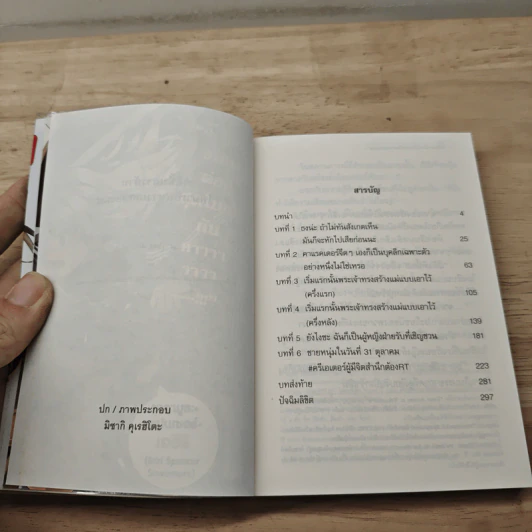 ปก / ภาพประกอบ
มิซากิ คุเรฮิโตะ
สารบัญ
บทนำ 4
บทที่ 1 ธงน่ะ ถ้าไม่ทันสังเกตเห็น
มันก็จะหักไปเสียก่อนนะ 25
บทที่ 2 คาแรคเตอร์จืดๆ เองก็เป็นบุคลิกเฉพาะตัว
อย่างหนึ่งไม่ใช่เหรอ 63
บทที่ 3 เริ่มแรกนั้นพระเจ้าทรงสร้างแม่แบบเอาไว้
(ครึ่งแรก) 105
บทที่ 4 เริ่มแรกนั้นพระเจ้าทรงสร้างแม่แบบเอาไว้
(ครึ่งหลัง) 139
บทที่ 5 ยังไงซะ ฉันก็เป็นผู้หญิงฝ่ายรับที่เชิญชวน 181
บทที่ 6 ชายหนุ่มในวันที่ 31 ตุลาคม
#ครีเอเตอร์ผู้มีจิตสำนึกต้องRT 223
บทส่งท้าย 281
ปัจฉิมลิขิต 297